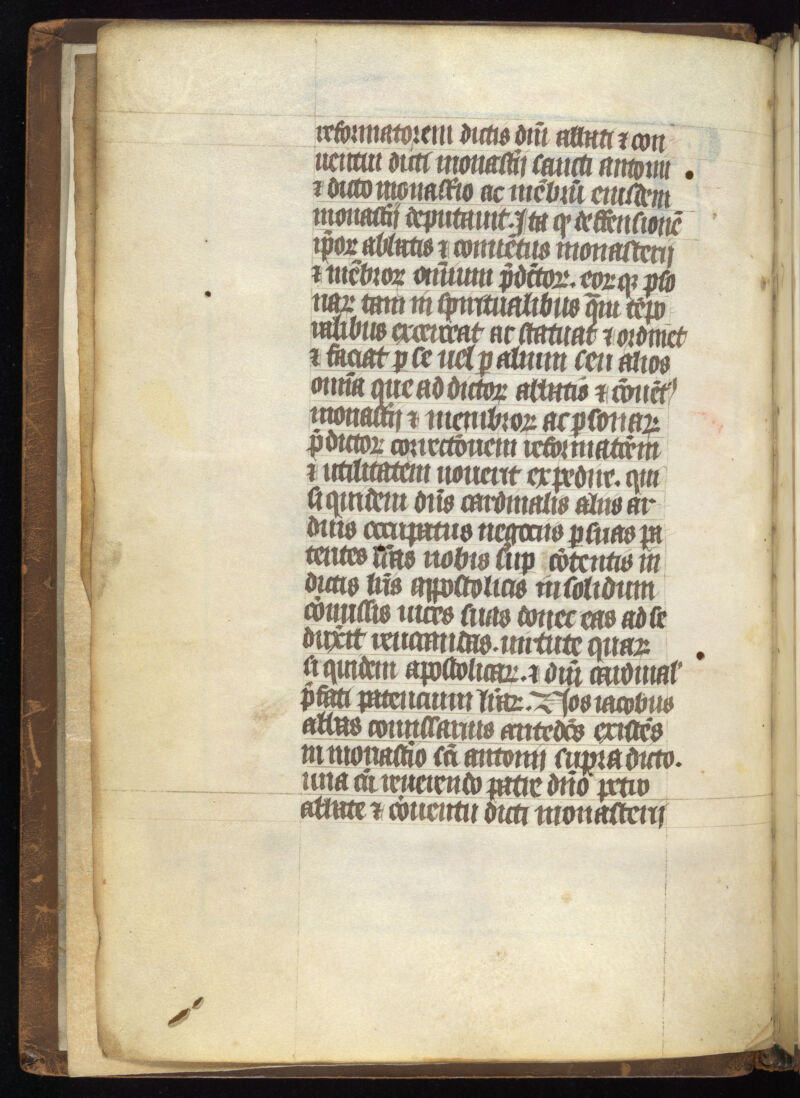 reformatorem dictis dn̄i abbati ⁊ con
uentui dicti monast̄ij sancti antonii
⁊ dicto monast̄io ac mēbrū eiusdem
monast̄ij deputauit. Ita ꝙ deffensionē
ip̄oꝝ abbatis ⁊ conuētus monasterij
⁊ mēbroꝝ omniū p̄dc̄toꝝ. eoꝝqꝫ ꝑso
naꝝ tam in spiritualibus q̄m tēpo
ralibus exerceat ac statuat ⁊ ordinet
⁊ faciat ꝑ se uel ꝑ alium seu alios
omīa que ad dictoꝝ abbatis ⁊ cōuēt᾿
monast̄ij ⁊ membroꝝ ac ꝑsonaꝝ
p̄dictoꝝ correctōnem reformatōem
⁊ utilitatem nouerit expedire. qui
siquidem dn̄s cardinalis aliis ar
duis occupatus negociis ꝑ suas pa
tentes lr̄as nobis sup̱ cōtentis in
dictis lr̄is appostolicis in solidum
cōmissis uices suas donec eas ad se
dux̄it reuocandas. uirtute quaꝝ
siquidem apostolicaꝝ. ⁊ dn̄i cardinal᾿
p̄fati patencium lr̄aꝝ. Nos iacobus
abbas comissarius antedc̄s existēs
in monast̄io sc̄i antonij supradicto.
una cū reuerendo patre dn̄o petro
abbate ⁊ cōuentu dicti monasterij